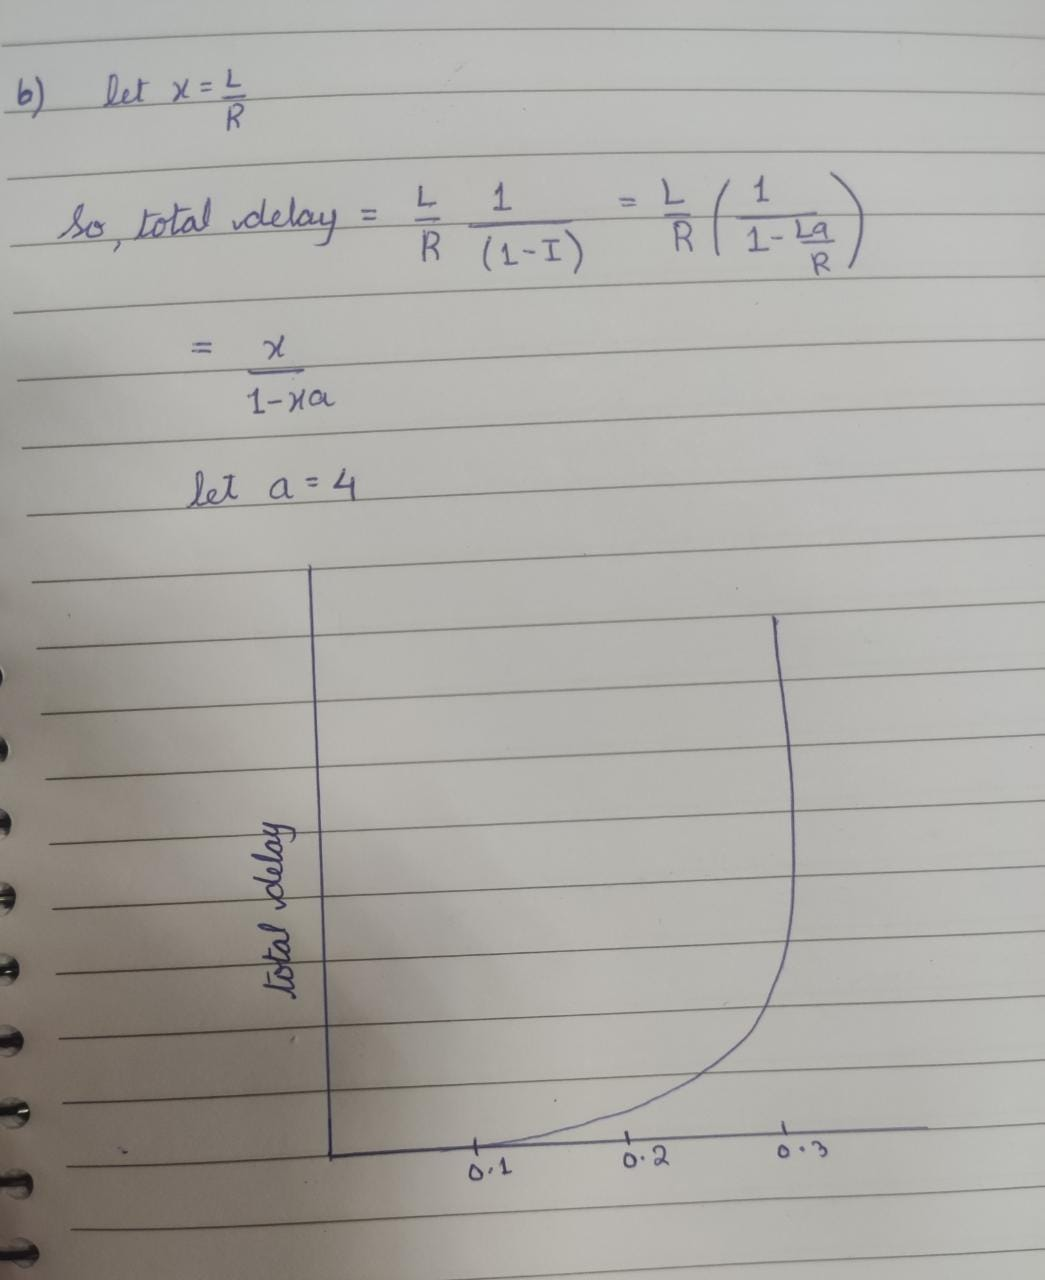 b) let x = L/R
So, total delay = L/R 1/(1-I) = L/R (1/(1-La/R))
= x/(1-xa)
let a = 4
total delay
0.1 0.2 0.3